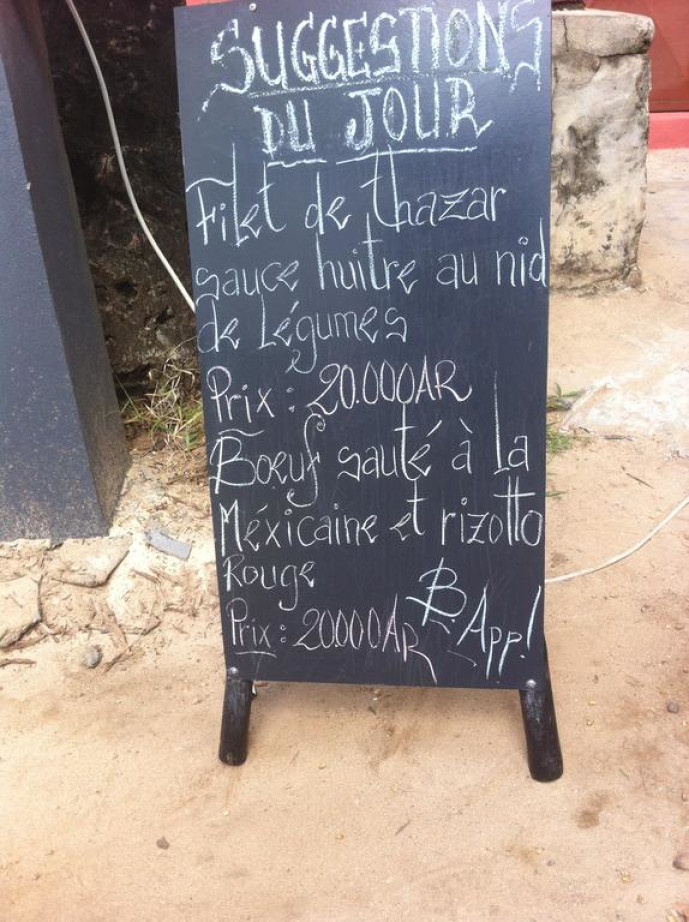 SUGGESTIONS
DU JOUR
Filet de thazar
sauce huitre au nid
de Légumes
Prix : 20.000AR
Boeuf sauté à la
Méxicaine et rizotto
Rouge
Prix : 20.000AR
B. App!